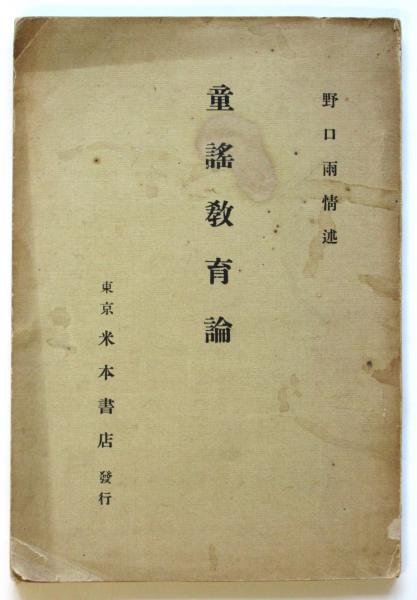 野口雨情述
童謠教育論
東京 米本書店 發行